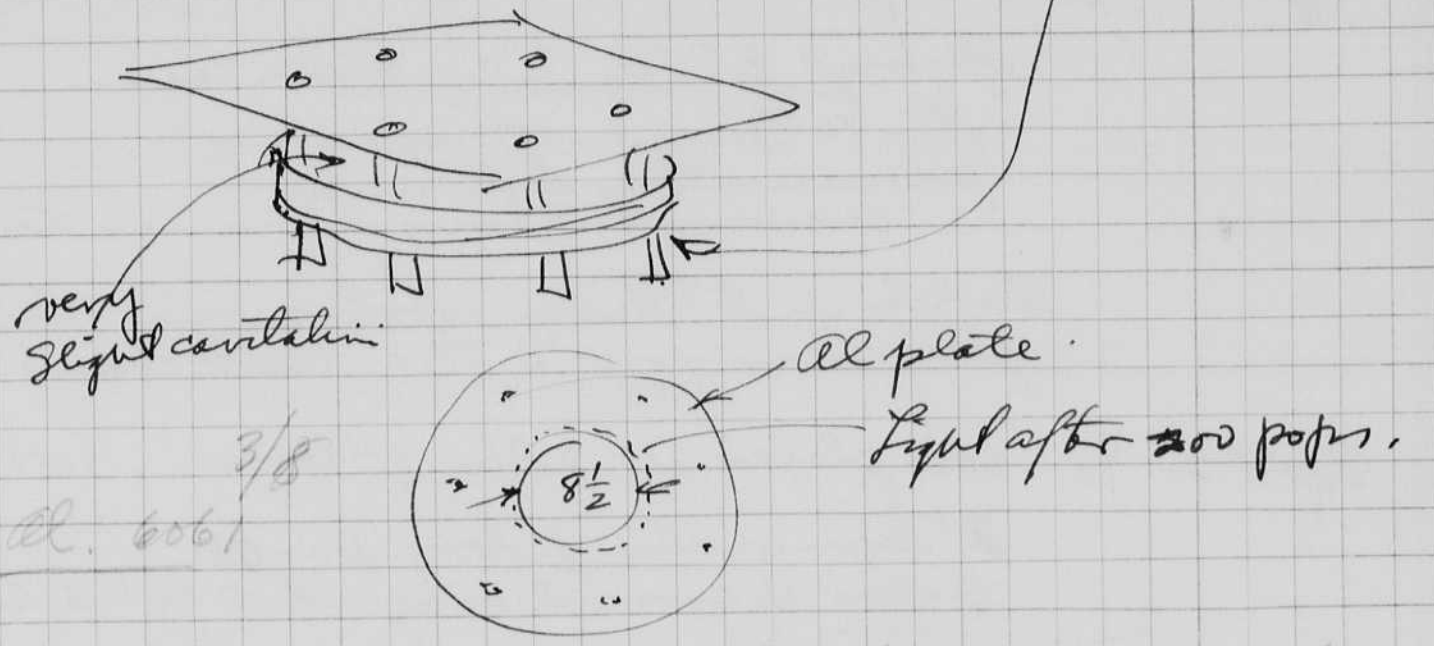 very
slight cavitation
Al plate.
after 200 pops.
8 1/2
3/8
Al. 6061